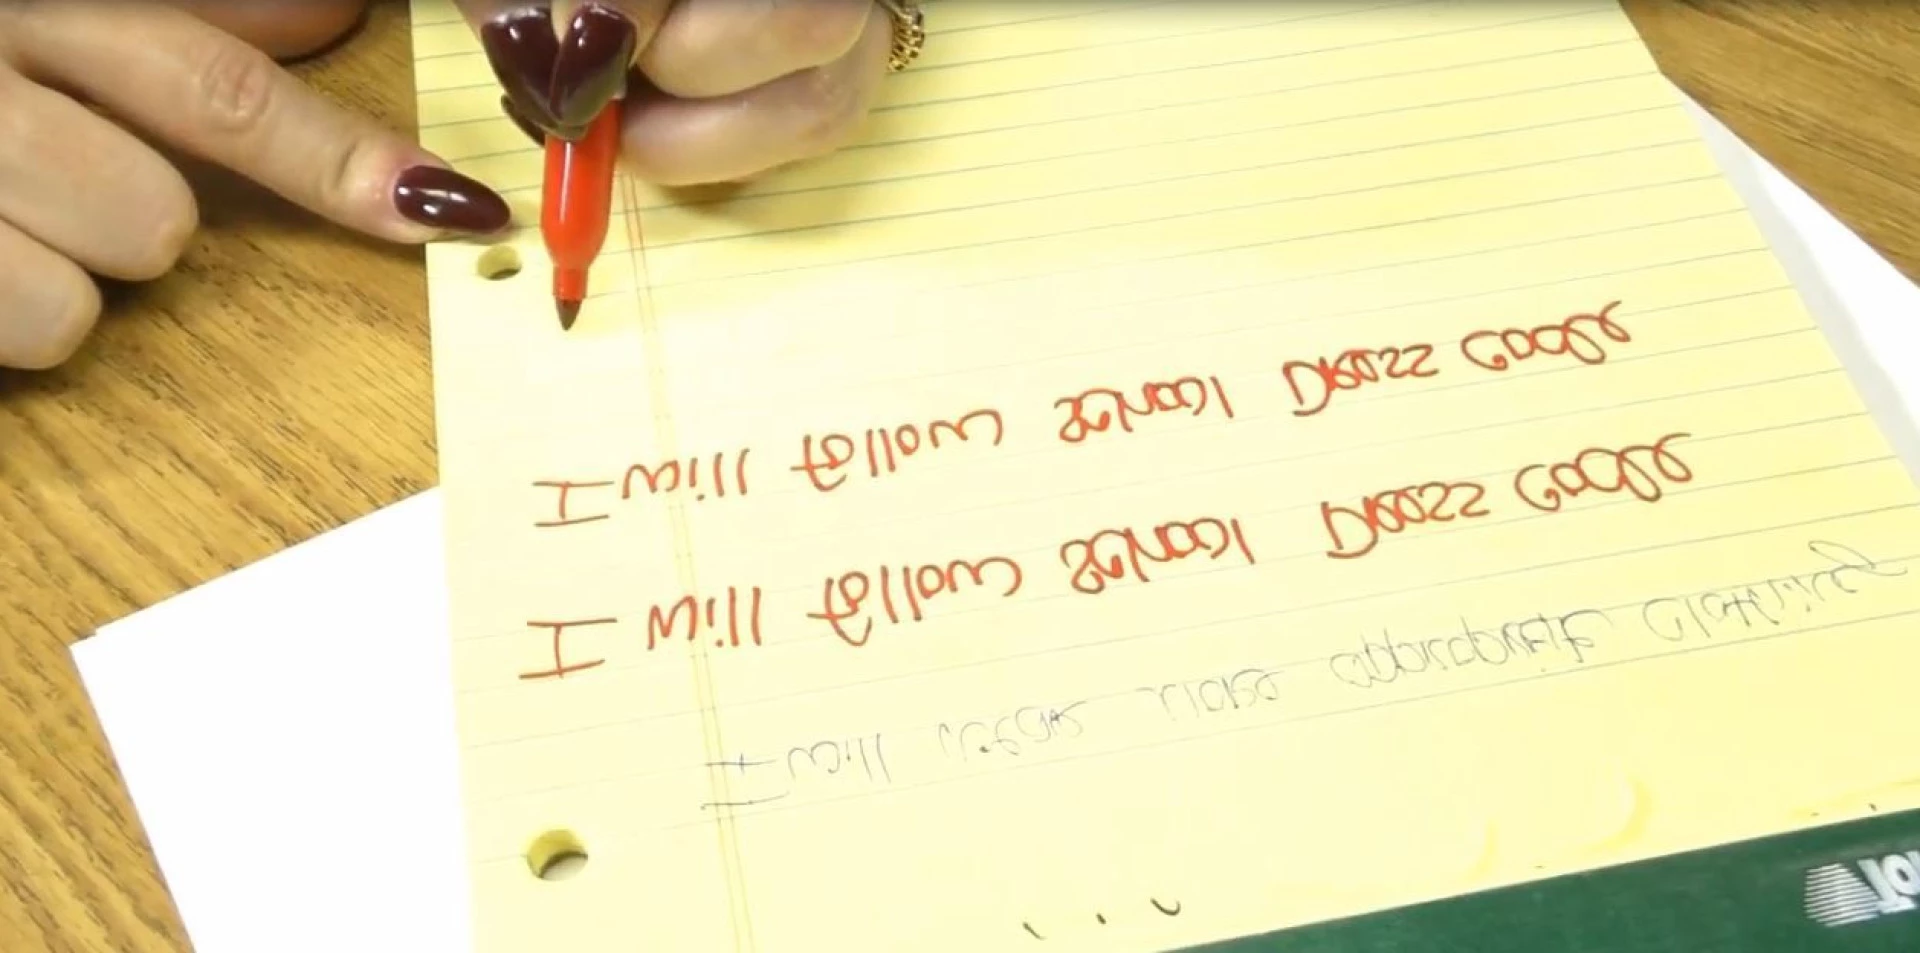 I will wear more appropriate clothing
I will follow school Dress code
I will follow school Dress code